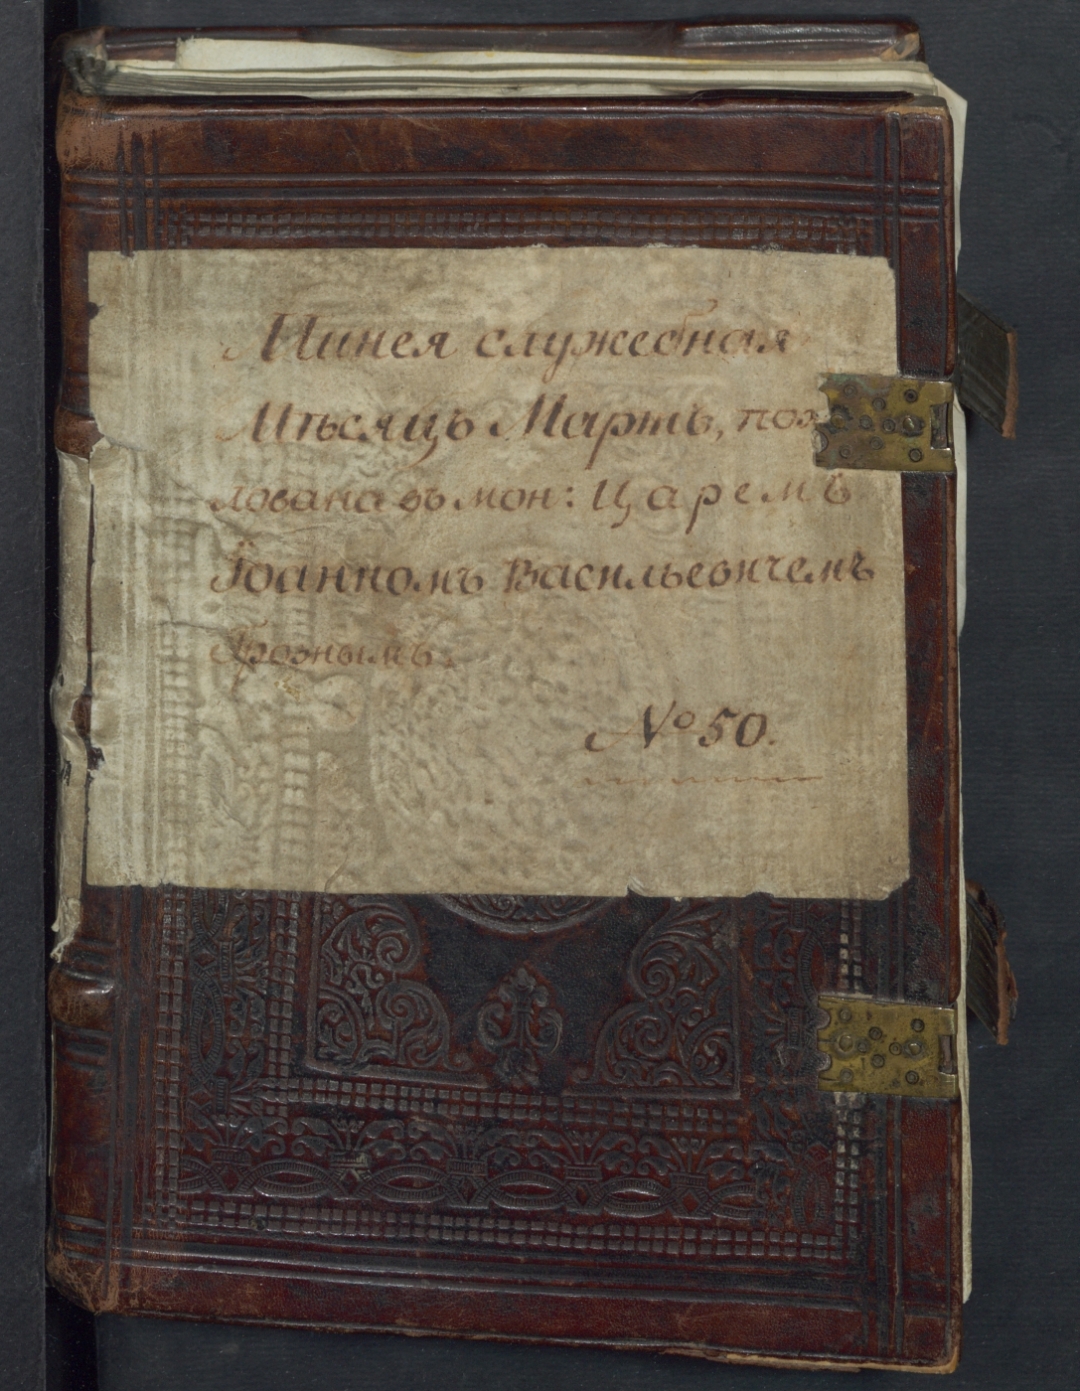 Минея служебная
Мѣсяцъ Мартъ, пож
лована въ мон: Царемъ
Іоанномъ Васильевичемъ
Грознымъ.
№ 50.